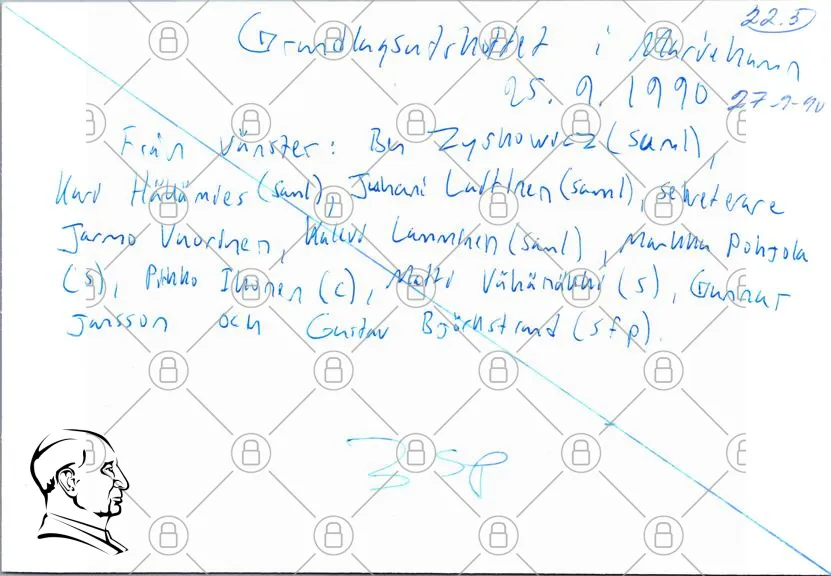 22.5
Grundlagsutskottet i Mariehamn
25.9.1990 27-9-90
Från vänster: Ben Zyskowicz (saml),
Kari Häkämies (saml), Juhani Laitinen (saml), sekreterare
Jarmo Vuorinen, Kalevi Lamminen (saml), Markku Pohjola
(s), Pirkko Ikonen (c), Matti Vähänäkki (s), Gunnar
Jansson och Gustav Björkstrand (sfp).